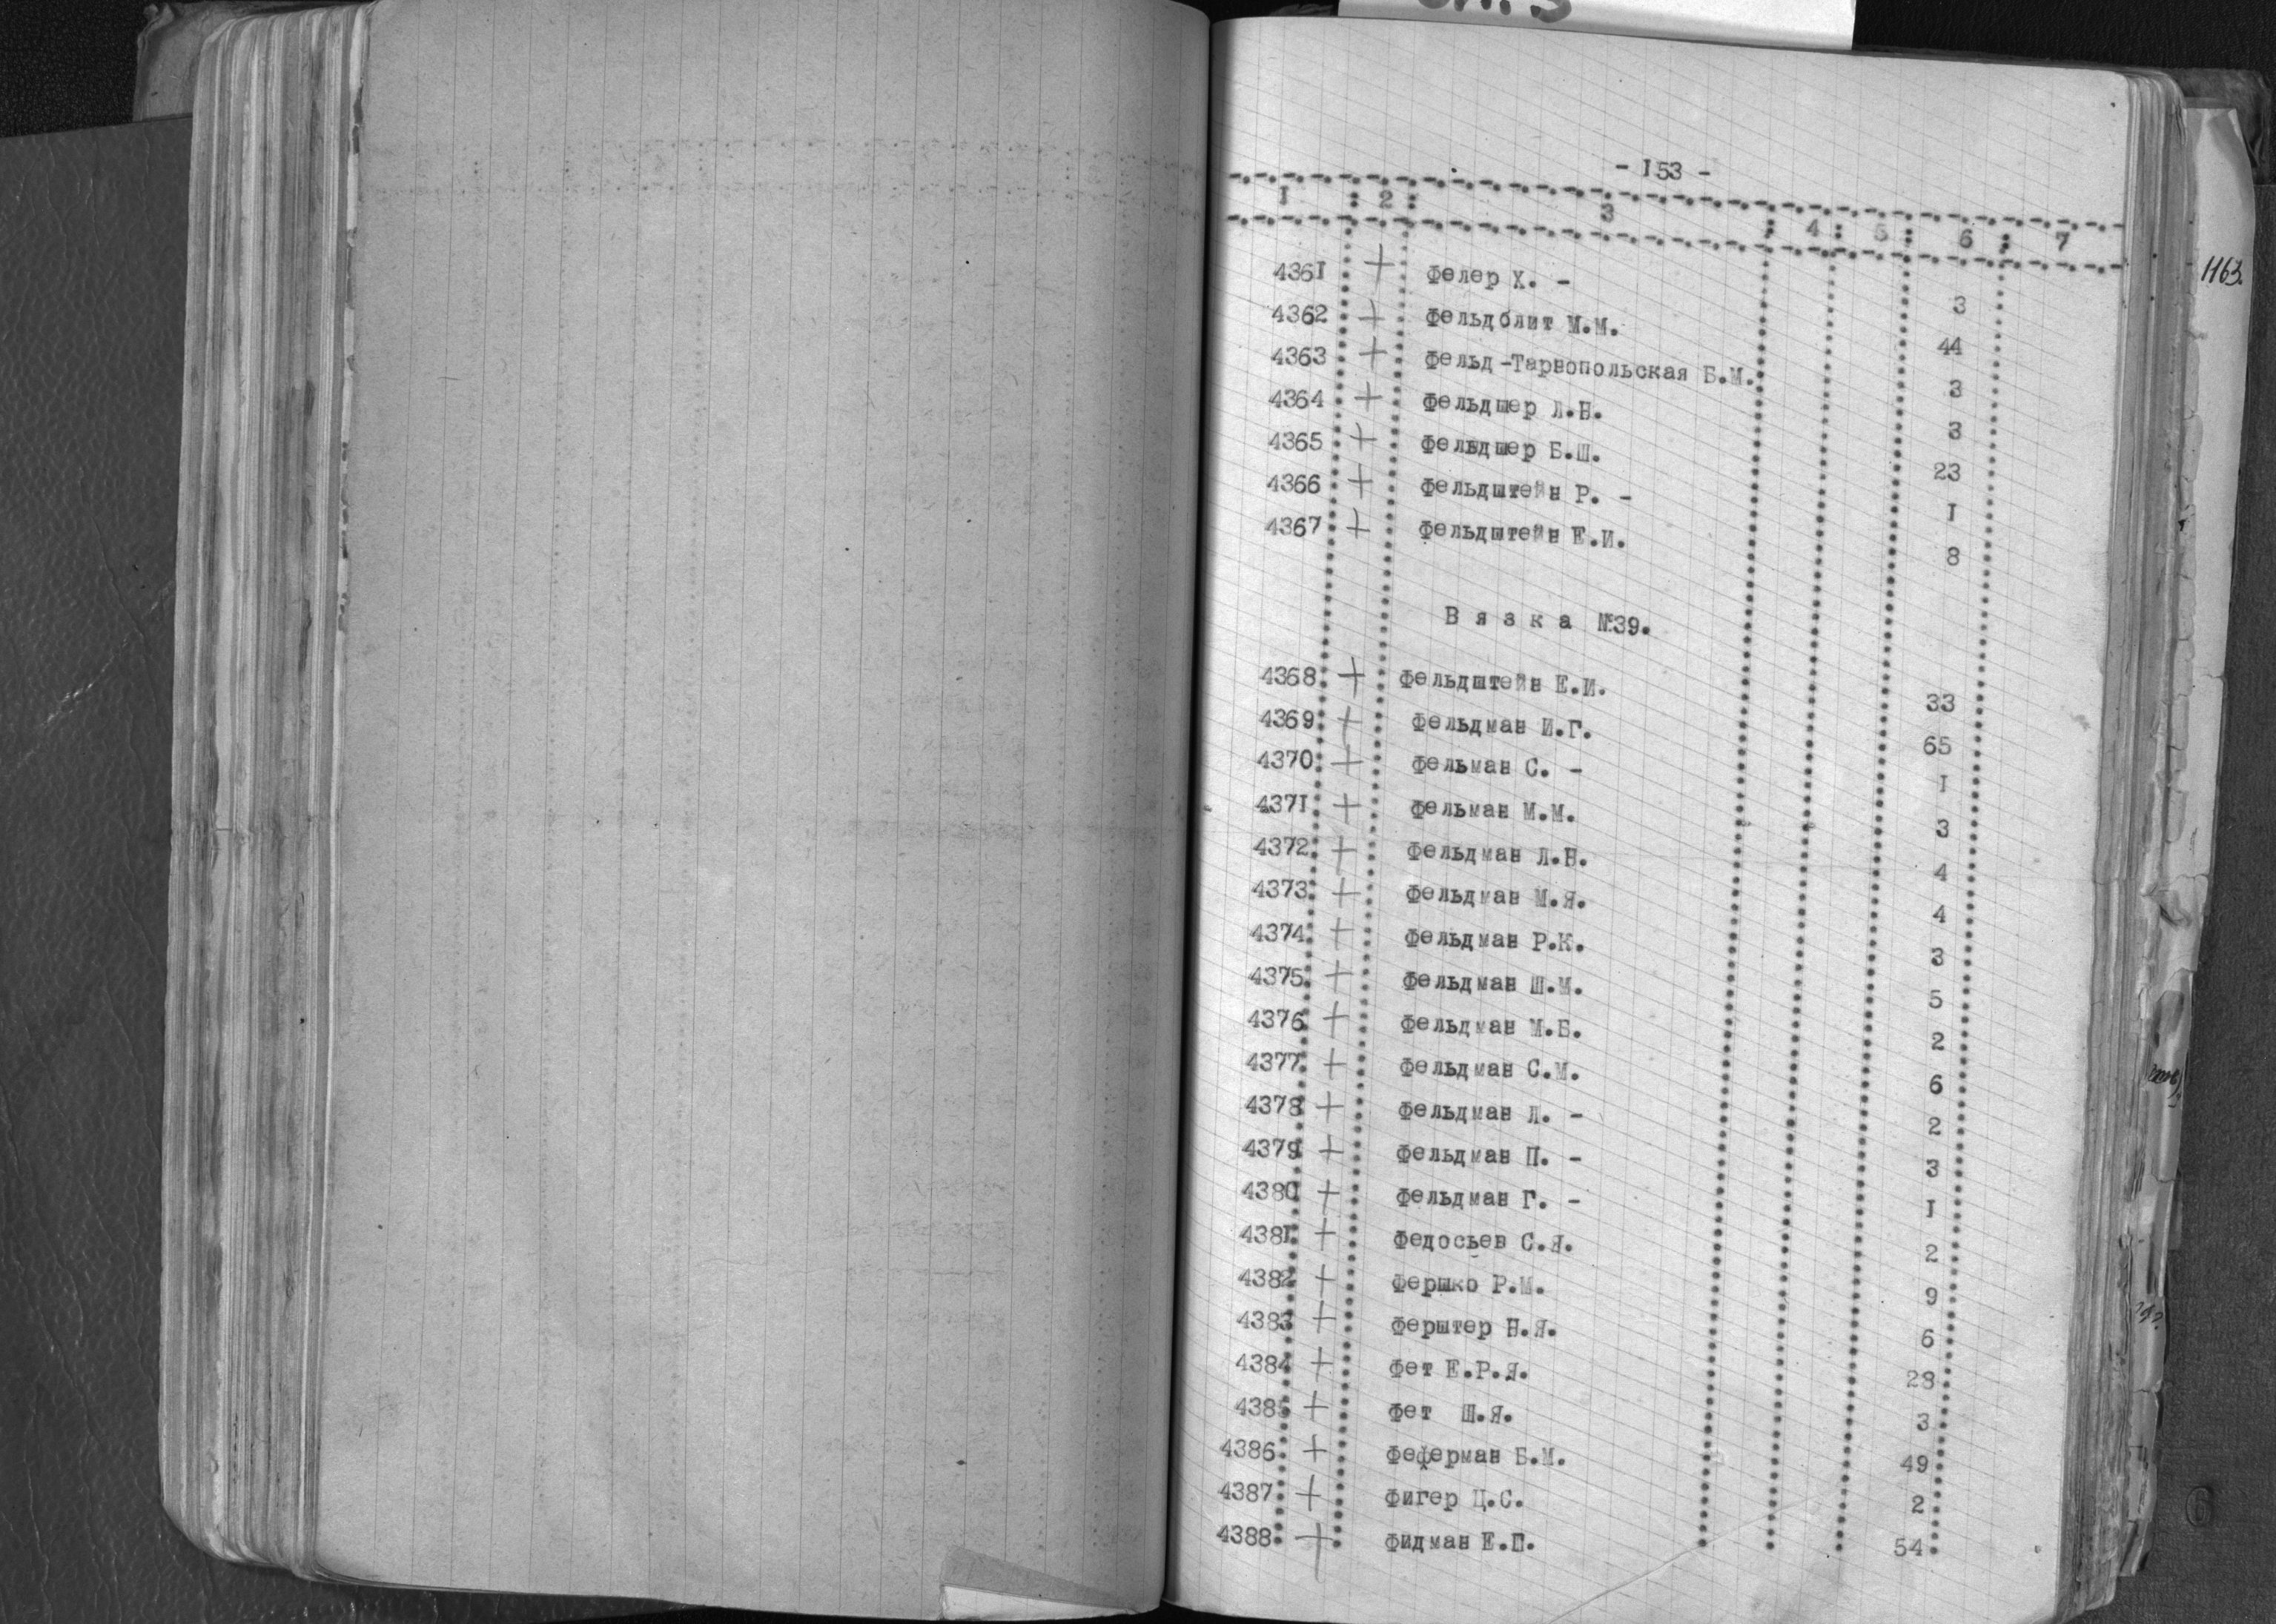 - I53 -
I : 2 : 3 : 4 : 5 : 6 : 7
4361 + Фелер Х. - 3
4362 + Фельдблит М.М. 44
4363 + Фельд-Тарнопольская Б.М. 3
4364 + Фельдшер Л.Н. 3
4365 + Фельдшер Б.Ш. 23
4366 + Фельдштейн Р. - I
4367 + Фельдштейн Е.И. 8
Вязка №39.
4368 + Фельдштейн Е.И. 33
4369 + Фельдман И.Г. 65
4370 + Фельман С. - I
437I + Фельман М.М. 3
4372 + Фельдман Л.Н. 4
4373 + Фельдман М.Я. 4
4374 + Фельдман Р.К. 3
4375 + Фельдман Ш.М. 5
4376 + Фельдман М.Б. 2
4377 + Фельдман С.М. 6
4378 + Фельдман Л. - 2
4379 + Фельдман П. - 3
4380 + Фельдман Г. - I
438I + Федосьев С.Я. 2
4382 + Фершко Р.М. 9
4383 + Ферштер Н.Я. 6
4384 + Фет Е.Р.Я. 28
4385 + Фет Ш.Я. 3
4386 + Феферман Б.М. 49
4387 + Фигер Ц.С. 2
4388 + Фидман Е.П. 54
1163.